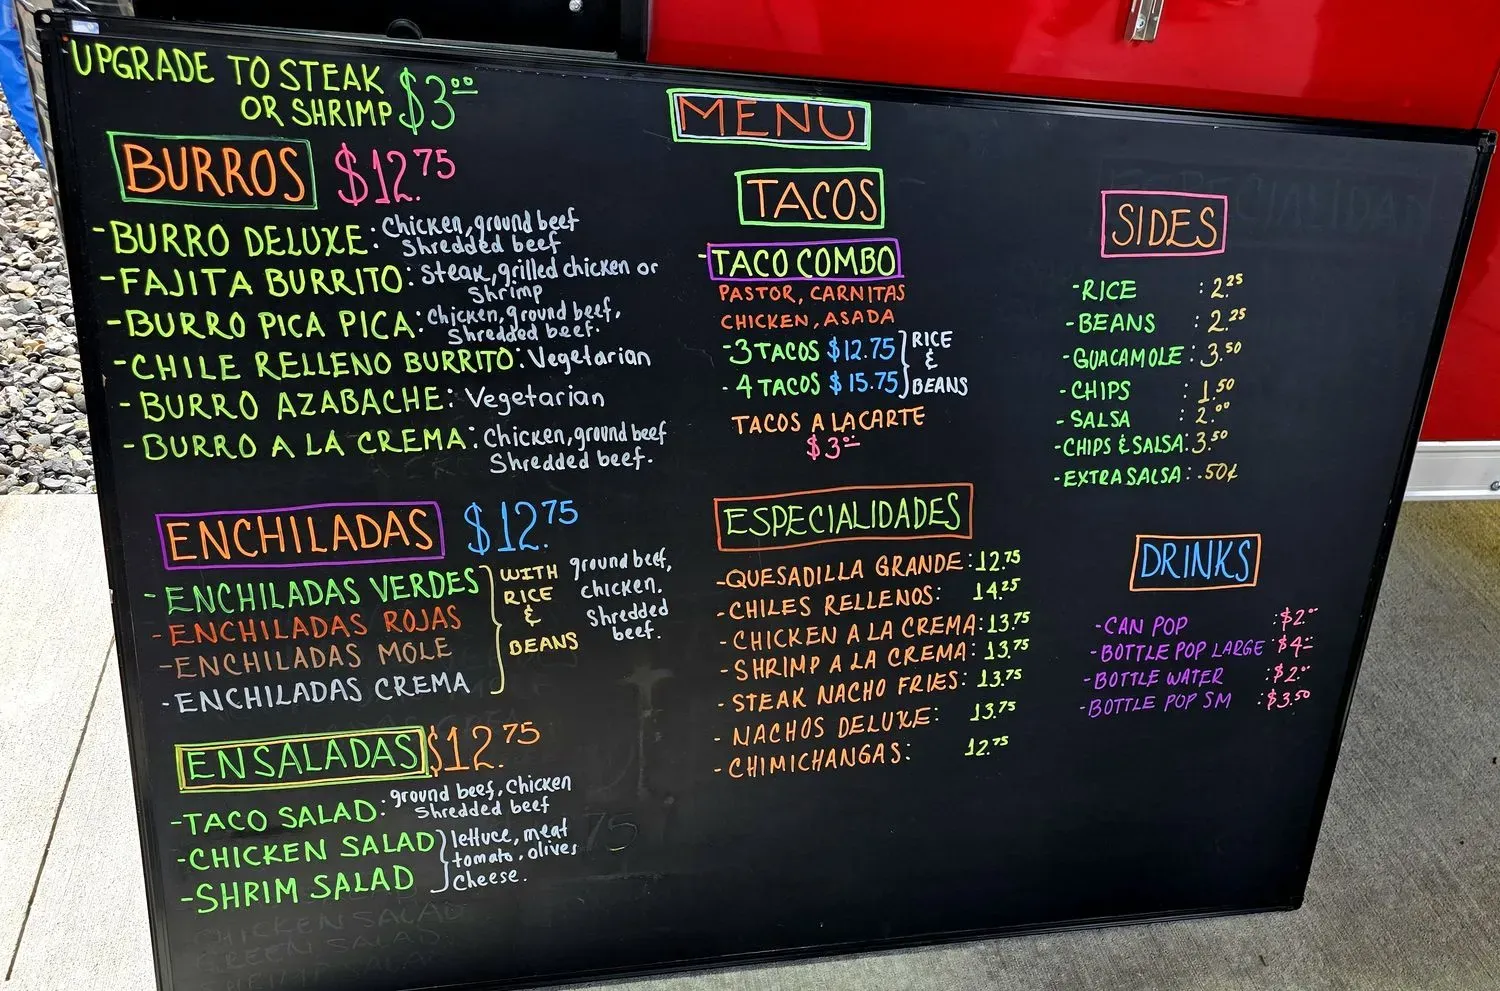 UPGRADE TO STEAK
OR SHRIMP $3.00
MENU
BURROS $12.75
-BURRO DELUXE: Chicken, ground beef
Shredded beef
-FAJITA BURRITO: Steak, grilled chicken or
Shrimp
-BURRO PICA PICA: Chicken, ground beef,
Shredded beef.
-CHILE RELLENO BURRITO: Vegetarian
-BURRO AZABACHE: Vegetarian
-BURRO A LA CREMA: Chicken, ground beef
Shredded beef.
ENCHILADAS $12.75
-ENCHILADAS VERDES
-ENCHILADAS ROJAS
-ENCHILADAS MOLE
-ENCHILADAS CREMA
WITH
RICE
&
BEANS
ground beef,
chicken,
Shredded
beef.
ENSALADAS $12.75
-TACO SALAD: ground beef, Chicken
Shredded beef
-CHICKEN SALAD
-SHRIM SALAD
lettuce, meat
tomato, olives
Cheese.
TACOS
-TACO COMBO
PASTOR, CARNITAS
CHICKEN, ASADA
-3 TACOS $12.75
-4 TACOS $15.75
RICE
&
BEANS
TACOS A LA CARTE
$3.00
ESPECIALIDADES
-QUESADILLA GRANDE: 12.75
-CHILES RELLENOS: 14.25
-CHICKEN A LA CREMA: 13.75
-SHRIMP A LA CREMA: 13.75
-STEAK NACHO FRIES: 13.75
-NACHOS DELUXE: 13.75
-CHIMICHANGAS: 12.75
SIDES
-RICE : 2.25
-BEANS : 2.25
-GUACAMOLE: 3.50
-CHIPS : 1.50
-SALSA : 2.00
-CHIPS & SALSA: 3.50
-EXTRA SALSA: .50¢
DRINKS
-CAN POP : $2.00
-BOTTLE POP LARGE $4-
-BOTTLE WATER : $2.00
-BOTTLE POP SM : $3.50